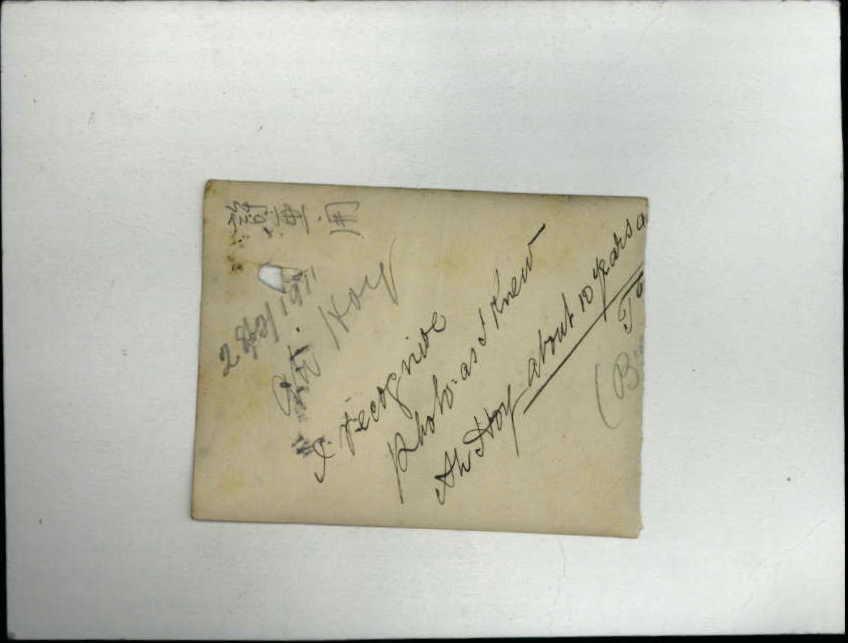 28/2/1911
Ah Hoy
I recognise
Photo as I Knew
Ah Hoy about 10 years a
(B